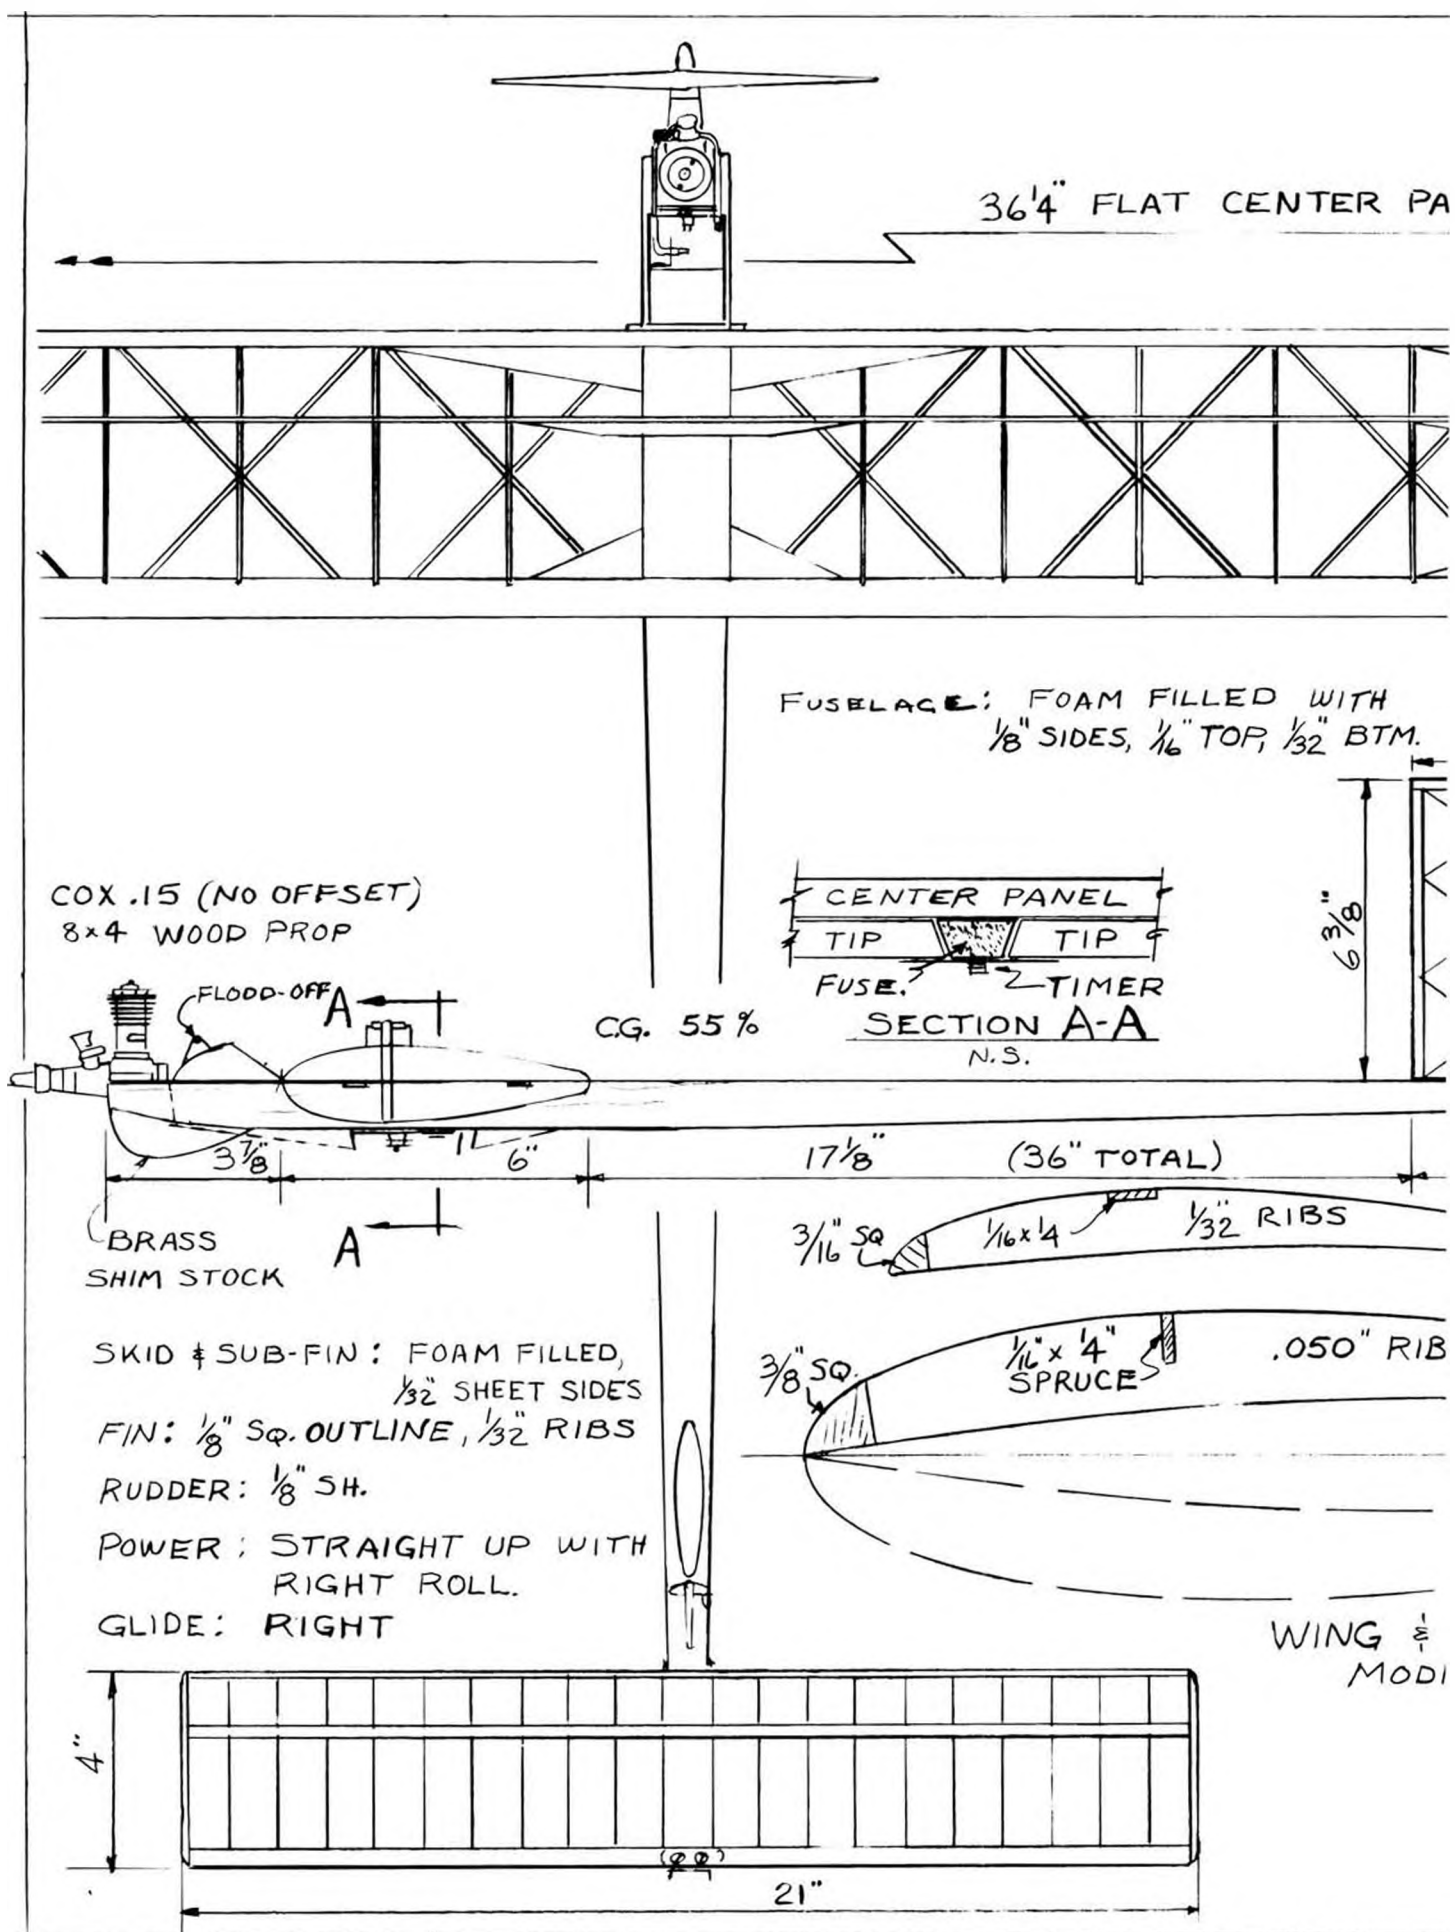 36 1/4" FLAT CENTER PA
FUSELAGE: FOAM FILLED WITH
1/8" SIDES, 1/16" TOP, 1/32" BTM.
COX .15 (NO OFFSET)
8x4 WOOD PROP
FLOOD-OFF
A
CENTER PANEL
TIP
TIP
FUSE.
TIMER
SECTION A-A
N.S.
C.G. 55%
6 3/8"
3 7/8"
6"
17 1/8"
(36" TOTAL)
A
BRASS
SHIM STOCK
3/16" SQ
1/16 x 1/4
1/32" RIBS
3/8" SQ.
1/16" x 1/4"
SPRUCE
.050" RIB
SKID & SUB-FIN: FOAM FILLED,
1/32" SHEET SIDES
FIN: 1/8" SQ. OUTLINE, 1/32" RIBS
RUDDER: 1/8" SH.
POWER: STRAIGHT UP WITH
RIGHT ROLL.
GLIDE: RIGHT
WING &
MODI
4"
21"